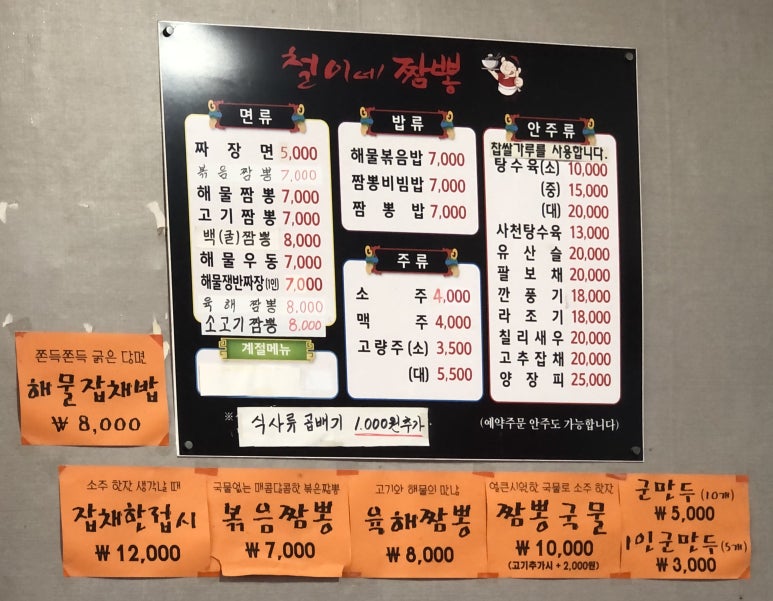 철이네 짬뽕
면류
짜장면 5,000
볶음짬뽕 7,000
해물짬뽕 7,000
고기짬뽕 7,000
백(굴)짬뽕 8,000
해물우동 7,000
해물쟁반짜장(1인) 7,000
육해짬뽕 8,000
소고기짬뽕 8.000
계절메뉴
밥류
해물볶음밥 7,000
짬뽕비빔밥 7,000
짬뽕밥 7,000
주류
소주 4,000
맥주 4,000
고량주(소) 3,500
(대) 5,500
안주류
찹쌀가루를 사용합니다.
탕수육(소) 10,000
(중) 15,000
(대) 20,000
사천탕수육 13,000
유산슬 20,000
팔보채 20,000
깐풍기 18,000
라조기 18,000
칠리새우 20,000
고추잡채 20,000
양장피 25,000
※
식사류 곱배기 1.000원추가
(예약주문 안주도 가능합니다)
쫀득쫀득 굵은 당면
해물잡채밥
₩ 8,000
소주 한잔 생각날 때
잡채한접시
₩ 12,000
국물없는 매콤달콤한 볶은짬뽕
볶음짬뽕
₩ 7,000
고기와 해물의 만남
육해짬뽕
₩ 8,000
얼큰시원한 국물로 소주 한잔
짬뽕국물
₩ 10,000
(고기추가시 + 2,000원)
군만두(10개)
₩ 5,000
1인군만두(5개)
₩ 3,000